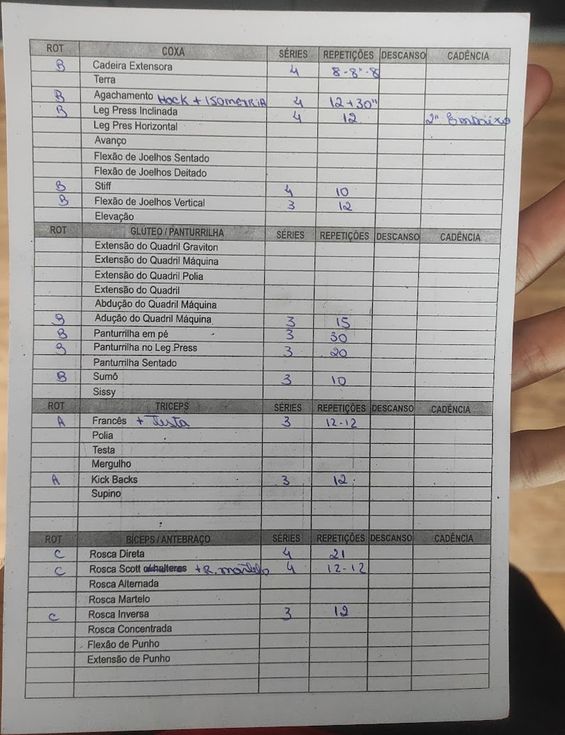 ROT COXA SÉRIES REPETIÇÕES DESCANSO CADÊNCIA
B Cadeira Extensora 4 8-8-8
Terra
B Agachamento Hack + isometria 4 12+30"
B Leg Press Inclinada 4 12 2" Embaixo
Leg Pres Horizontal
Avanço
Flexão de Joelhos Sentado
Flexão de Joelhos Deitado
B Stiff 4 10
B Flexão de Joelhos Vertical 3 12
Elevação
ROT GLÚTEO / PANTURRILHA SÉRIES REPETIÇÕES DESCANSO CADÊNCIA
Extensão do Quadril Graviton
Extensão do Quadril Máquina
Extensão do Quadril Polia
Extensão do Quadril
Abdução do Quadril Máquina
B Adução do Quadril Máquina 3 15
B Panturrilha em pé 3 30
B Panturrilha no Leg Press 3 20
Panturrilha Sentado
B Sumô 3 10
Sissy
ROT TRICEPS SÉRIES REPETIÇÕES DESCANSO CADÊNCIA
A Francês + Testa 3 12-12
Polia
Testa
Mergulho
A Kick Backs 3 12
Supino
ROT BÍCEPS / ANTEBRAÇO SÉRIES REPETIÇÕES DESCANSO CADÊNCIA
C Rosca Direta 4 21
C Rosca Scott + R. martelo 4 12-12
Rosca Alternada
Rosca Martelo
C Rosca Inversa 3 12
Rosca Concentrada
Flexão de Punho
Extensão de Punho